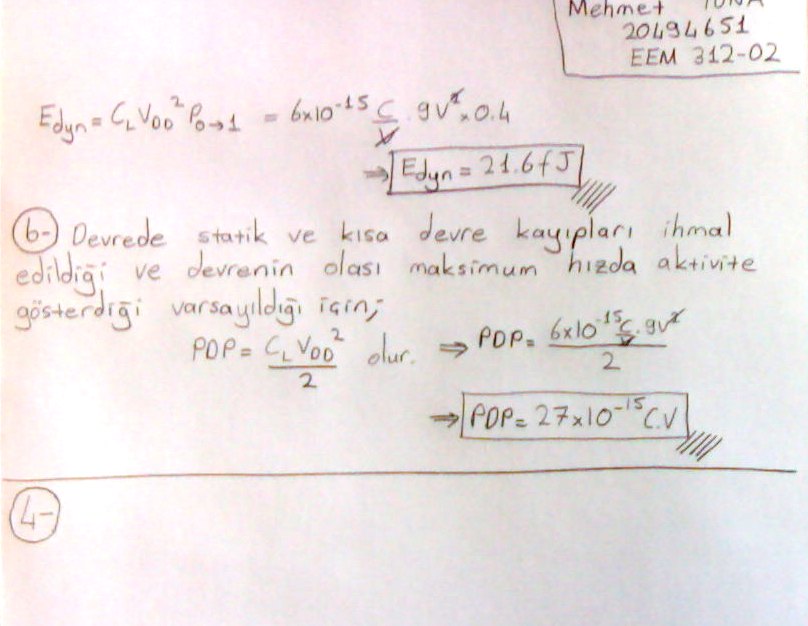 Mehmet TUNA
20494651
EEM 312-02
Edyn = CL VDD² P0→1 = 6x10⁻¹⁵ C/V . 9V² x 0.4
⇒ Edyn = 21.6 fJ
b- Devrede statik ve kısa devre kayıpları ihmal
edildiği ve devrenin olası maksimum hızda aktivite
gösterdiği varsayıldığı için;
PDP = CL VDD² / 2 olur. ⇒ PDP = 6x10⁻¹⁵ C/V . 9V² / 2
⇒ PDP = 27x10⁻¹⁵ C.V
4-